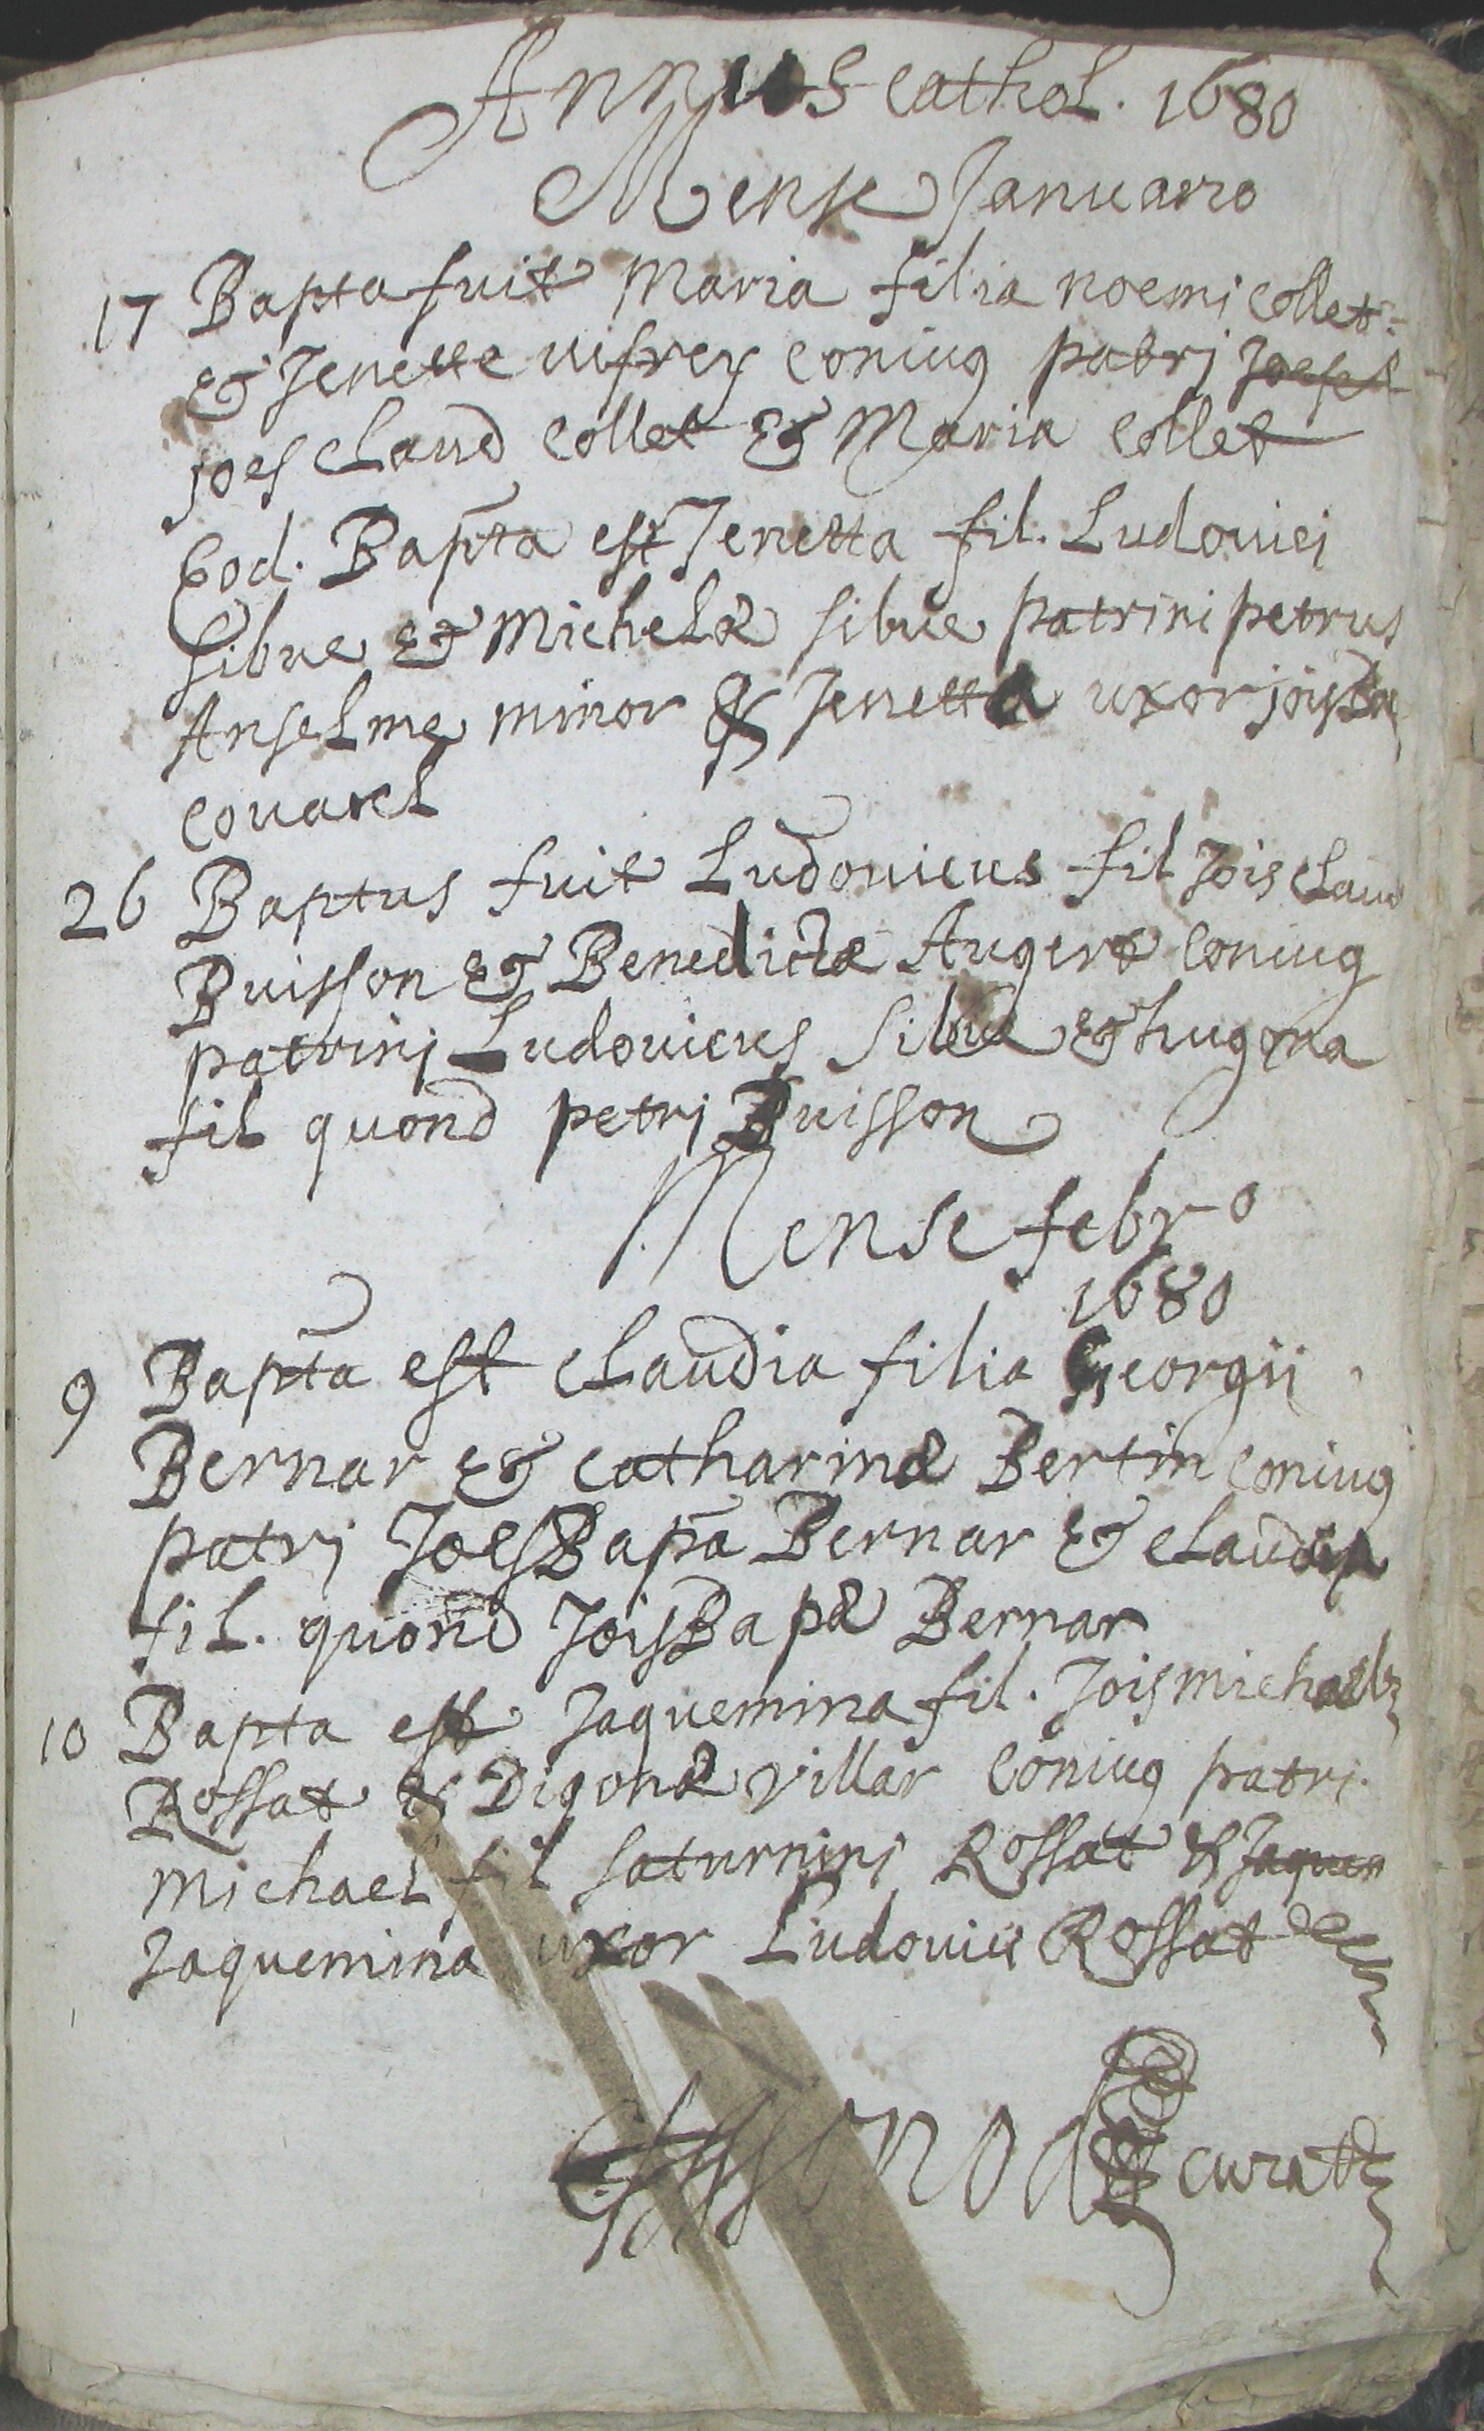 Annus cathol. 1680
Mense Januario
17 Bapta fuit Maria filia noemi Collet
& Jenette vifrey coniug patrj
joes claud collet & Maria collet
Eod. Bapta est Jenetta fil. Ludovici
sibue & Michelæ sibue patrini petrus
Anselme minor & Jenetta uxor
covarel
26 Baptus fuit Ludovicus fil Jois claud
Buisson & Benedictæ Augert coniug
patrinj Ludovicus sibue & hugona
fil quond petrj Buisson
Mense febro
1680
9 Bapta est claudia filia Georgii
Bernar & catharinæ Bertin coniug
patrj JoesBapta Bernar & claudia
fil. quond JoisBapæ Bernar
10 Bapta est Jaquemina fil. Joismichaelis
Rossat & Digonæ villar coniug patrj.
Michael fil saturninj Rossat & Jaquem
Jaquemina uxor Ludovici Rossat
curatus